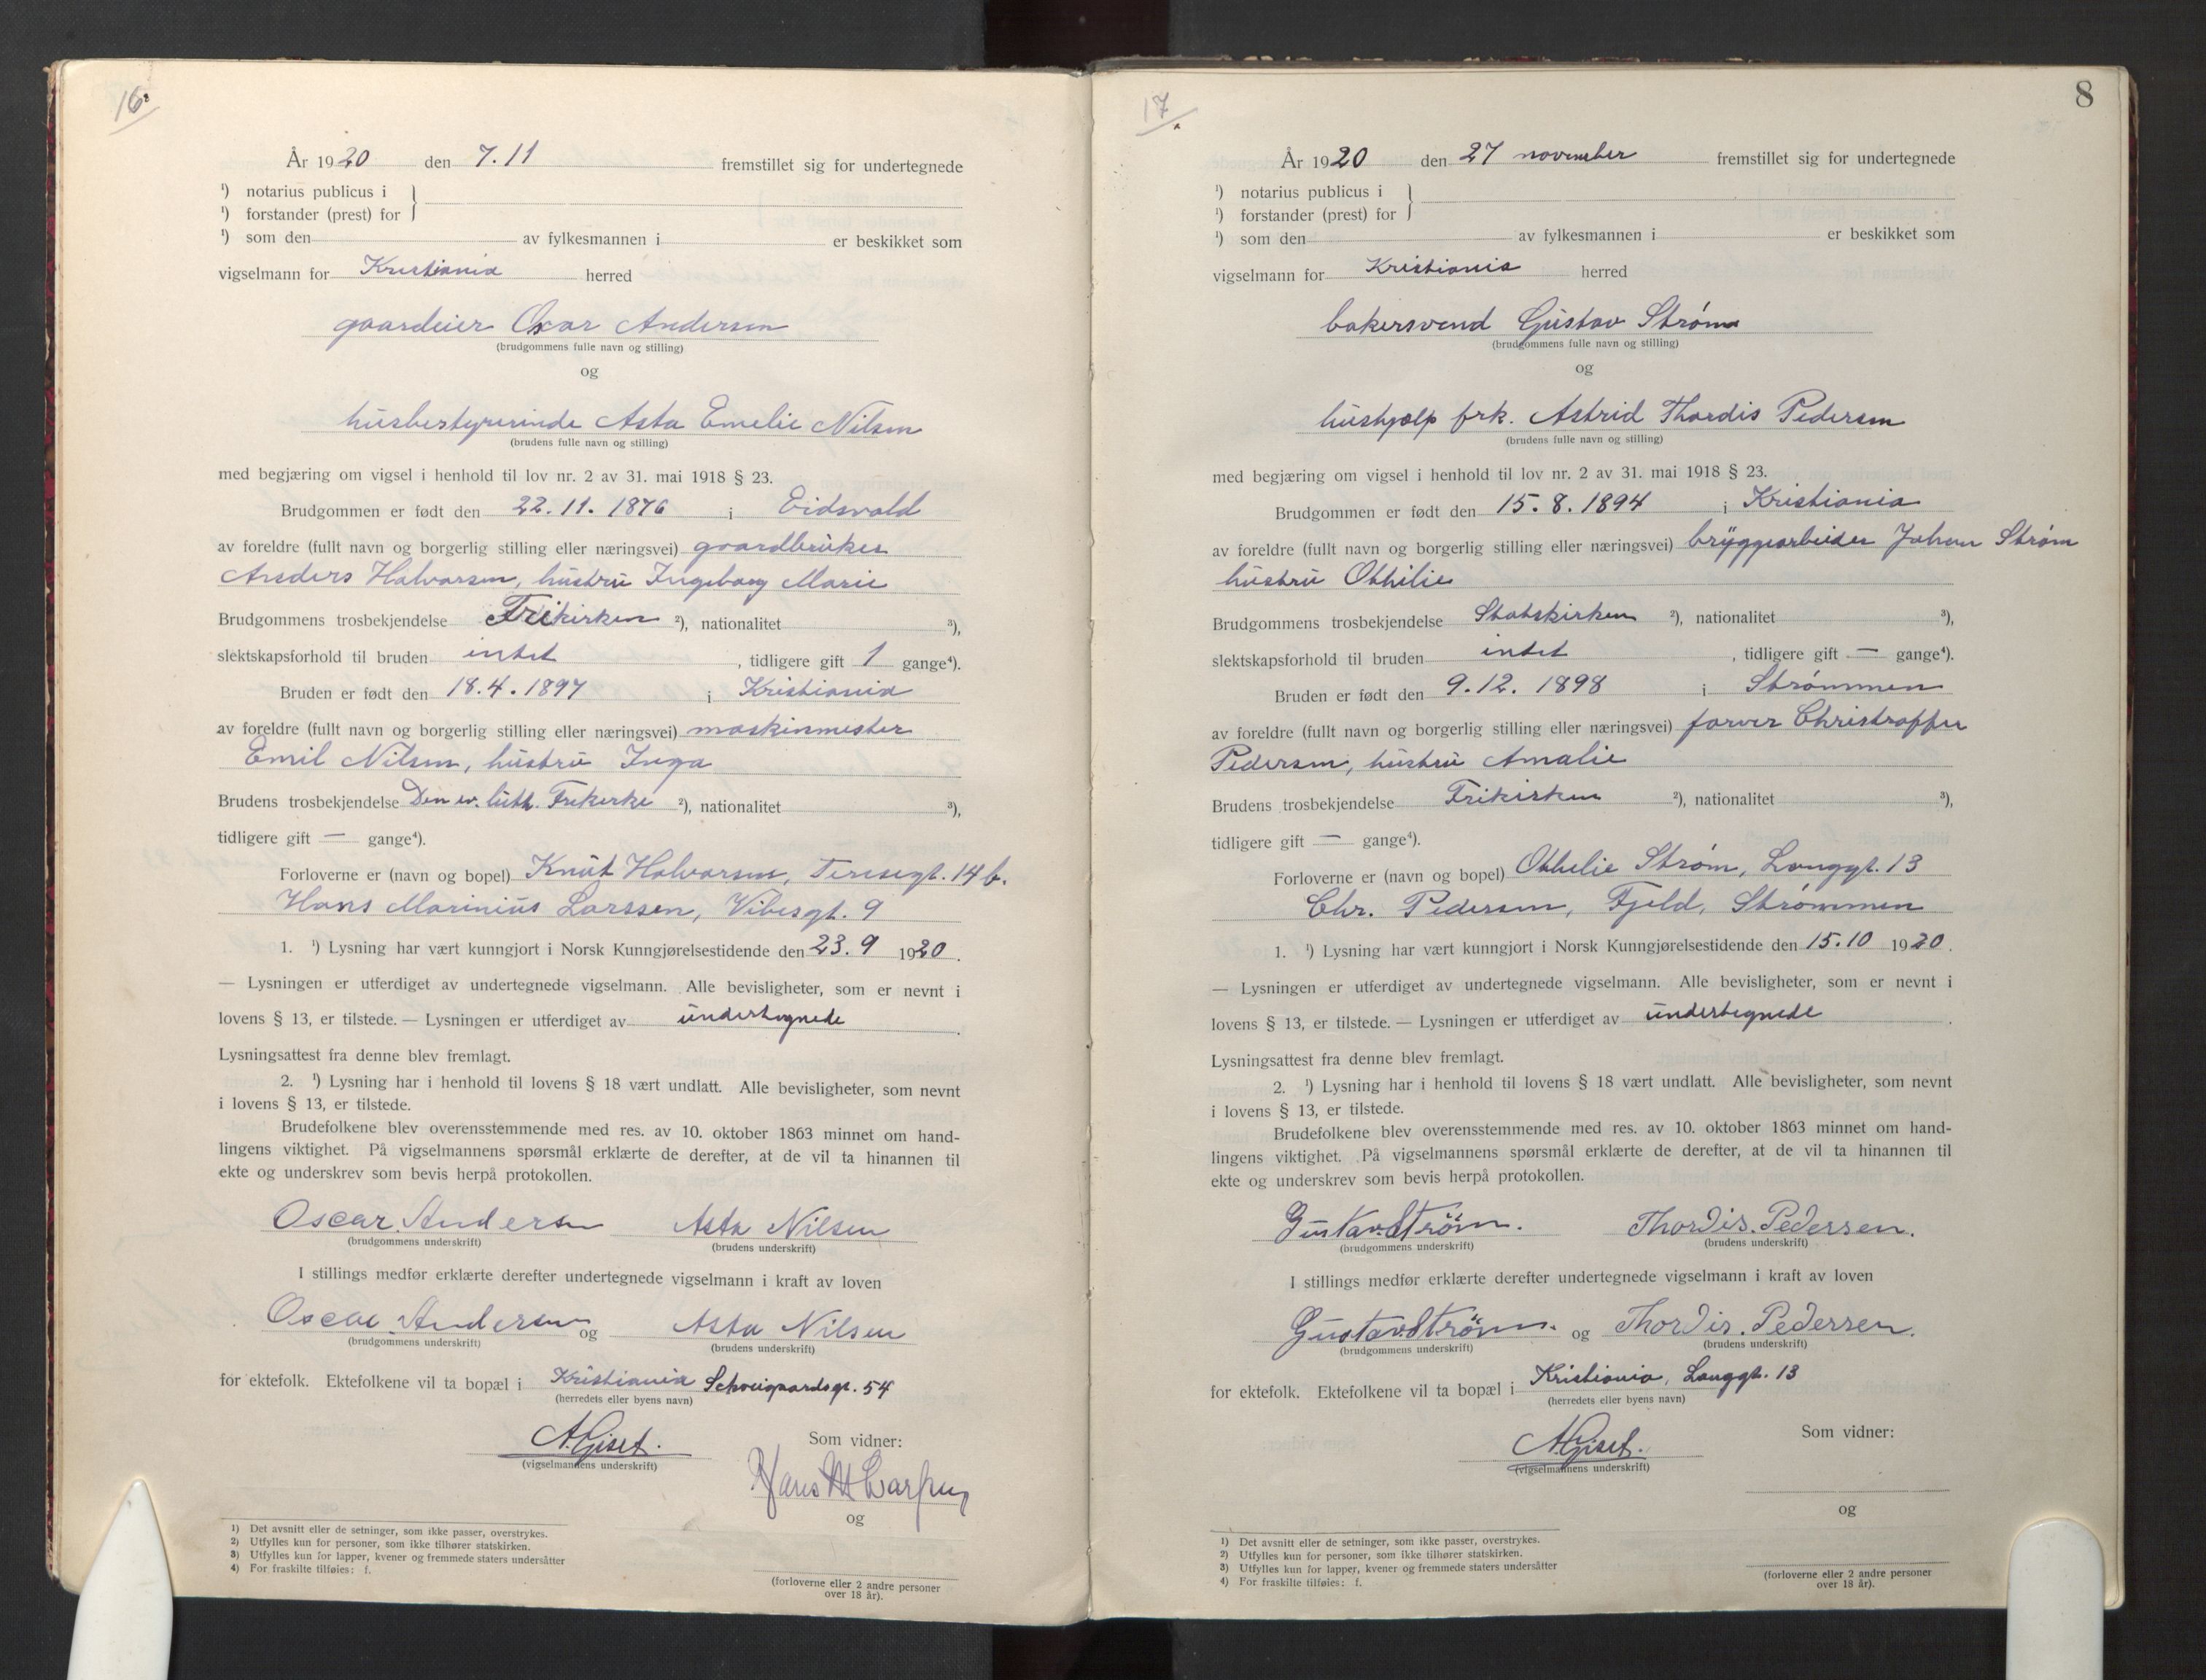 16.
År 1920 den 7.11 fremstillet sig for undertegnede
¹) notarius publicus i
¹) forstander (prest) for
¹) som den av fylkesmannen i er beskikket som
vigselmann for Kristiania herred
gaardeier Oscar Andersen
(brudgommens fulle navn og stilling)
og
husbestyrerinde Asta Emelie Nilsen
(brudens fulle navn og stilling)
med begjæring om vigsel i henhold til lov nr. 2 av 31. mai 1918 § 23.
Brudgommen er født den 22.11.1876 i Eidsvold
av foreldre (fullt navn og borgerlig stilling eller næringsvei) gaardbruker
Anders Halvorsen, hustru Ingeborg Marie
Brudgommens trosbekjendelse Frikirken ²), nationalitet ³),
slektskapsforhold til bruden intet , tidligere gift 1 gange⁴).
Bruden er født den 18.4.1897 i Kristiania
av foreldre (fullt navn og borgerlig stilling eller næringsvei) maskinmester
Emil Nilsen, hustru Inga
Brudens trosbekjendelse Den ev. luth. Frikirke ²), nationalitet ³),
tidligere gift — gange⁴).
Forloverne er (navn og bopel) Knut Halvorsen, Teresegt. 14 b.
Hans Marinius Larssen, Vibesgt. 9
1. ¹) Lysning har vært kunngjort i Norsk Kunngjørelsestidende den 23.9 1920.
— Lysningen er utferdiget av undertegnede vigselmann. Alle bevisligheter, som er nevnt i
lovens § 13, er tilstede. — Lysningen er utferdiget av undertegnede.
Lysningsattest fra denne blev fremlagt.
2. ¹) Lysning har i henhold til lovens § 18 vært undlatt. Alle bevisligheter, som nevnt
i lovens § 13, er tilstede.
Brudefolkene blev overensstemmende med res. av 10. oktober 1863 minnet om hand-
lingens viktighet. På vigselmannens spørsmål erklærte de derefter, at de vil ta hinannen til
ekte og underskrev som bevis herpå protokollen.
Oscar Andersen Asta Nilsen
(brudgommens underskrift) (brudens underskrift)
I stillings medfør erklærte derefter undertegnede vigselmann i kraft av loven
Oscar Andersen og Asta Nilsen
(brudgommens underskrift) (brudens underskrift)
for ektefolk. Ektefolkene vil ta bopæl i Kristiania Schweigaardsgt. 54
(herredets eller byens navn)
A. Giset. Som vidner:
(vigselmannens underskrift)
Hans M Larssen
og
1) Det avsnitt eller de setninger, som ikke passer, overstrykes.
2) Utfylles kun for personer, som ikke tilhører statskirken.
3) Utfylles kun for lapper, kvener og fremmede staters undersåtter
4) For fraskilte tilføies: f.
(forloverne eller 2 andre personer
over 18 år).
17.
8
År 1920 den 27 november fremstillet sig for undertegnede
¹) notarius publicus i
¹) forstander (prest) for
¹) som den av fylkesmannen i er beskikket som
vigselmann for Kristiania herred
bakersvend Gustav Strøm
(brudgommens fulle navn og stilling)
og
hushjælp frk. Astrid Thordis Pedersen
(brudens fulle navn og stilling)
med begjæring om vigsel i henhold til lov nr. 2 av 31. mai 1918 § 23.
Brudgommen er født den 15.8.1894 i Kristiania
av foreldre (fullt navn og borgerlig stilling eller næringsvei) bryggearbeider Johan Strøm
hustru Othilie
Brudgommens trosbekjendelse Statskirken ²), nationalitet ³),
slektskapsforhold til bruden intet , tidligere gift — gange⁴).
Bruden er født den 9.12.1898 i Strømmen
av foreldre (fullt navn og borgerlig stilling eller næringsvei) farver Christoffer
Pedersen, hustru Amalie
Brudens trosbekjendelse Frikirken ²), nationalitet ³),
tidligere gift — gange⁴).
Forloverne er (navn og bopel) Othelie Strøm, Langgt. 13
Chr. Pedersen, Fjeld, Strømmen
1. ¹) Lysning har vært kunngjort i Norsk Kunngjørelsestidende den 15.10 1920.
— Lysningen er utferdiget av undertegnede vigselmann. Alle bevisligheter, som er nevnt i
lovens § 13, er tilstede. — Lysningen er utferdiget av undertegnede.
Lysningsattest fra denne blev fremlagt.
2. ¹) Lysning har i henhold til lovens § 18 vært undlatt. Alle bevisligheter, som nevnt
i lovens § 13, er tilstede.
Brudefolkene blev overensstemmende med res. av 10. oktober 1863 minnet om hand-
lingens viktighet. På vigselmannens spørsmål erklærte de derefter, at de vil ta hinannen til
ekte og underskrev som bevis herpå protokollen.
Gustav Ström. Thordis. Pedersen.
(brudgommens underskrift) (brudens underskrift)
I stillings medfør erklærte derefter undertegnede vigselmann i kraft av loven
Gustav Ström. og Thordis. Pedersen.
(brudgommens underskrift) (brudens underskrift)
for ektefolk. Ektefolkene vil ta bopæl i Kristiania, Langgt. 13
(herredets eller byens navn)
A. Giset. Som vidner:
(vigselmannens underskrift)
og
1) Det avsnitt eller de setninger, som ikke passer, overstrykes.
2) Utfylles kun for personer, som ikke tilhører statskirken.
3) Utfylles kun for lapper, kvener og fremmede staters undersåtter
4) For fraskilte tilføies: f.
(forloverne eller 2 andre personer
over 18 år).